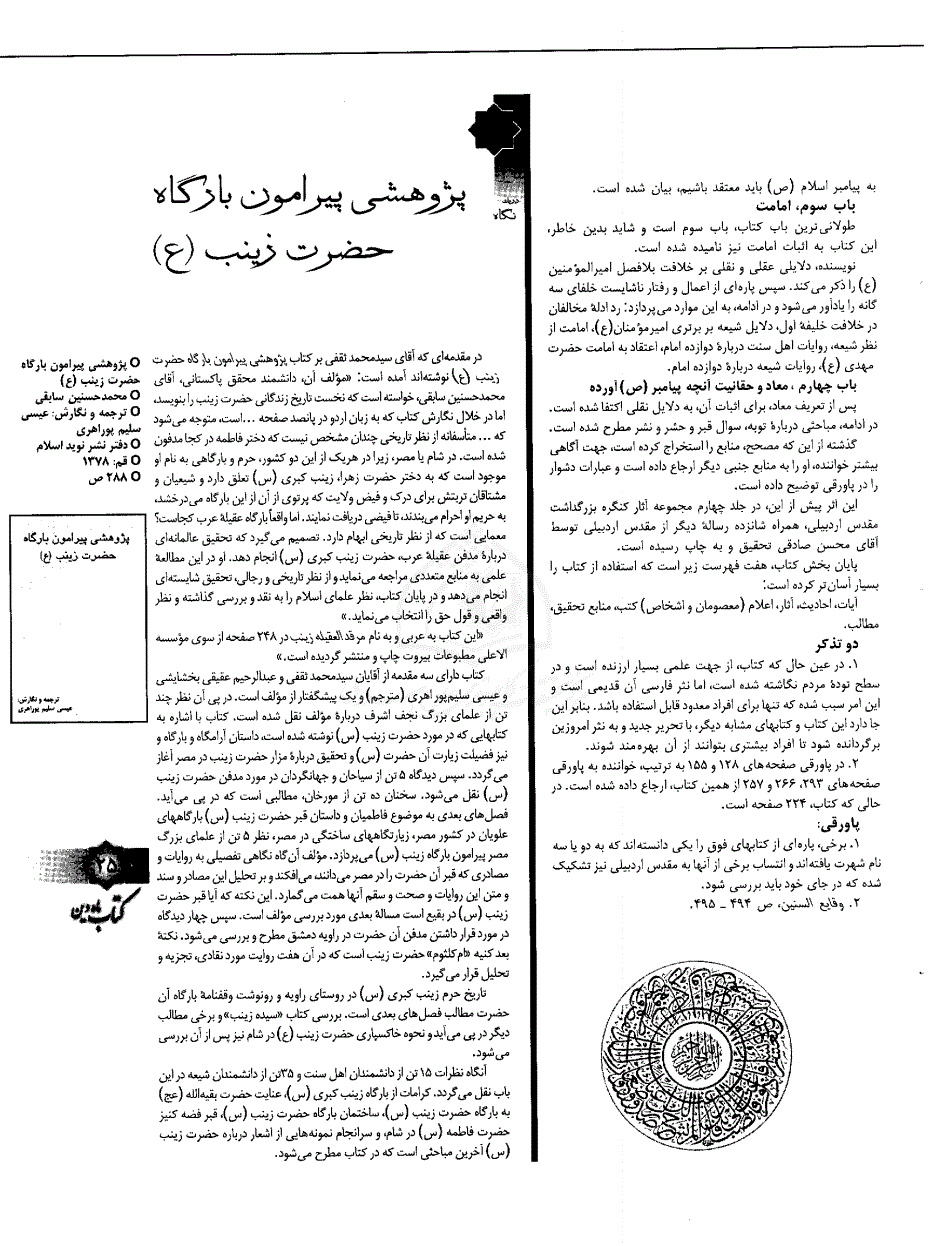 به پیامبر اسلام (ص) باید معتقد باشیم، بیان شده است.
باب سوم، امامت
طولانی‌ترین باب کتاب، باب سوم است و شاید بدین خاطر،
این کتاب به اثبات امامت نیز نامیده شده است.
نویسنده، دلایلی عقلی و نقلی بر خلافت بلافصل امیرالمؤمنین
(ع) را ذکر می‌کند. سپس پاره‌ای از اعمال و رفتار ناشایست خلفای سه
گانه را یادآور می‌شود و در ادامه، به این موارد می‌پردازد: رد ادلهٔ مخالفان
در خلافت خلیفهٔ اول، دلایل شیعه بر برتری امیرمؤمنان(ع)، امامت از
نظر شیعه، روایات اهل سنت دربارهٔ دوازده امام، اعتقاد به امامت حضرت
مهدی (ع)، روایات شیعه دربارهٔ دوازده امام.
باب چهارم، معاد و حقانیت آنچه پیامبر (ص) آورده
پس از تعریف معاد، برای اثبات آن، به دلایل نقلی اکتفا شده است.
در ادامه، مباحثی دربارهٔ توبه، سوال قبر و حشر و نشر مطرح شده است.
گذشته از این که مصحح، منابع را استخراج کرده است، جهت آگاهی
بیشتر خواننده، او را به منابع جنبی دیگر ارجاع داده است و عبارات دشوار
را در پاورقی توضیح داده است.
این اثر پیش از این، در جلد چهارم مجموعه آثار کنگره بزرگداشت
مقدس اردبیلی، همراه شانزده رسالهٔ دیگر از مقدس اردبیلی توسط
آقای محسن صادقی تحقیق و به چاپ رسیده است.
پایان بخش کتاب، هفت فهرست زیر است که استفاده از کتاب را
بسیار آسان‌تر کرده است:
آیات، احادیث، آثار، اعلام (معصومان و اشخاص) کتب، منابع تحقیق،
مطالب.
دو تذکر
۱. در عین حال که کتاب، از جهت علمی بسیار ارزنده است و در
سطح تودهٔ مردم نگاشته شده است، اما نثر فارسی آن قدیمی است و
این امر سبب شده که تنها برای افراد معدود قابل استفاده باشد. بنابر این
جا دارد این کتاب و کتابهای مشابه دیگر، با تحریر جدید و به نثر امروزین
برگردانده شود تا افراد بیشتری بتوانند از آن بهره‌مند شوند.
۲. در پاورقی صفحه‌های ۱۲۸ و ۱۵۵ به ترتیب، خواننده به پاورقی
صفحه‌های ۲۹۳، ۲۶۶ و ۲۵۷ از همین کتاب، ارجاع داده شده است. در
حالی که کتاب، ۲۲۴ صفحه است.
پاورقی:
۱. برخی، پاره‌ای از کتابهای فوق را یکی دانسته‌اند که به دو یا سه
نام شهرت یافته‌اند و انتساب برخی از آنها به مقدس اردبیلی نیز تشکیک
شده که در جای خود باید بررسی شود.
۲. وقایع السنین، ص ۴۹۴ ـ ۴۹۵.
نگاه
پژوهشی پیرامون بارگاه
حضرت زینب (ع)
در مقدمه‌ای که آقای سیدمحمد ثقفی بر کتاب پژوهشی پیرامون بارگاه حضرت
زینب (ع) نوشته‌اند آمده است: «مؤلف آن، دانشمند محقق پاکستانی، آقای
محمدحسنین سابقی، خواسته است که نخست تاریخ زندگانی حضرت زینب را بنویسد،
اما در خلال نگارش کتاب که به زبان اردو در پانصد صفحه ...است، متوجه می‌شود
که ... متأسفانه از نظر تاریخی چندان مشخص نیست که دختر فاطمه در کجا مدفون
شده است. در شام یا مصر، زیرا در هریک از این دو کشور، حرم و بارگاهی به نام او
موجود است که به دختر حضرت زهرا، زینب کبری (س) تعلق دارد و شیعیان و
مشتاقان تربتش برای درک و فیض ولایت که پرتوی از آن از این بارگاه می‌درخشد،
به حریم او احرام می‌بندند، تا فیضی دریافت نمایند. اما واقعاً بارگاه عقیلهٔ عرب کجاست؟
معمایی است که از نظر تاریخی ابهام دارد. تصمیم می‌گیرد که تحقیق عالمانه‌ای
دربارهٔ مدفن عقیلهٔ عرب، حضرت زینب کبری (س) انجام دهد. او در این مطالعهٔ
علمی به منابع متعددی مراجعه می‌نماید و از نظر تاریخی و رجالی، تحقیق شایسته‌ای
انجام می‌دهد و در پایان کتاب، نظر علمای اسلام را به نقد و بررسی گذاشته و نظر
واقعی و قول حق را انتخاب می‌نماید.»
«این کتاب به عربی و به نام مرقد العقیله زینب در ۲۴۸ صفحه از سوی مؤسسه
الاعلی مطبوعات بیروت چاپ و منتشر گردیده است.»
کتاب دارای سه مقدمه از آقایان سیدمحمد ثقفی و عبدالرحیم عقیقی بخشایشی
و عیسی سلیم‌پور اهری (مترجم) و یک پیشگفتار از مؤلف است. در پی آن نظر چند
تن از علمای بزرگ نجف اشرف دربارهٔ مؤلف نقل شده است. کتاب با اشاره به
کتابهایی که در مورد حضرت زینب (س) نوشته شده است، داستان آرامگاه و بارگاه و
نیز فضیلت زیارت آن حضرت (س) و تحقیق دربارهٔ مزار حضرت زینب در مصر آغاز
می‌گردد. سپس دیدگاه ۵ تن از سیاحان و جهانگردان در مورد مدفن حضرت زینب
(س) نقل می‌شود. سخنان ده تن از مورخان، مطالبی است که در پی می‌آید.
فصل‌های بعدی به موضوع فاطمیان و داستان قبر حضرت زینب (س) بارگاههای
علویان در کشور مصر، زیارتگاههای ساختگی در مصر، نظر ۵ تن از علمای بزرگ
مصر پیرامون بارگاه زینب (س) می‌پردازد. مؤلف آن‌گاه نگاهی تفصیلی به روایات و
مصادری که قبر آن حضرت را در مصر می‌دانند، می‌افکند و بر تحلیل این مصادر و سند
و متن این روایات و صحت و سقم آنها همت می‌گمارد. این نکته که آیا قبر حضرت
زینب (س) در بقیع است مسالهٔ بعدی مورد بررسی مؤلف است. سپس چهار دیدگاه
در مورد قرار داشتن مدفن آن حضرت در راویه دمشق مطرح و بررسی می‌شود. نکتهٔ
بعد کنیه «ام‌کلثوم» حضرت زینب است که در آن هفت روایت مورد نقادی، تجزیه و
تحلیل قرار می‌گیرد.
تاریخ حرم زینب کبری (س) در روستای راویه و رونوشت وقفنامهٔ بارگاه آن
حضرت مطالب فصل‌های بعدی است. بررسی کتاب «سیده زینب» و برخی مطالب
دیگر در پی می‌آید و نحوه خاکسپاری حضرت زینب (ع) در شام نیز پس از آن بررسی
می‌شود.
آنگاه نظرات ۱۵ تن از دانشمندان اهل سنت و ۳۵تن از دانشمندان شیعه در این
باب نقل می‌گردد. کرامات از بارگاه زینب کبری (س)، عنایت حضرت بقیه‌الله (عج)
به بارگاه حضرت زینب (س)، ساختمان بارگاه حضرت زینب (س)، قبر فضه کنیز
حضرت فاطمه (س) در شام، و سرانجام نمونه‌هایی از اشعار درباره حضرت زینب
(س) آخرین مباحثی است که در کتاب مطرح می‌شود.
پژوهشی پیرامون بارگاه
حضرت زینب (ع)
محمدحسنین سابقی
ترجمه و نگارش: عیسی
سلیم پوراهری
دفتر نشر نوید اسلام
قم: ۱۳۷۸
۲۸۸ ص
پژوهشی پیرامون بارگاه
حضرت زینب (ع)
ترجمه و نگارش:
عیسی سلیم پوراهری
۲۵
کتاب ماه دین